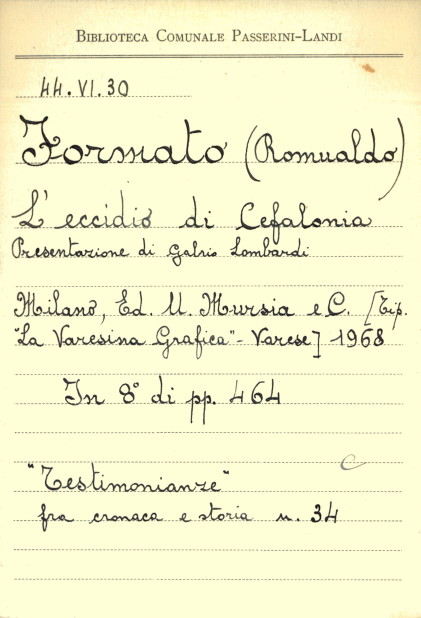 Biblioteca Comunale Passerini-Landi
44.VI.30
Formato (Romualdo)
L'eccidio di Cefalonia
Presentazione di Gabrio Lombardi
Milano, Ed. U. Mursia e C. [Tip.
"La Varesina Grafica" - Varese] 1968
In 8° di pp. 464
C
"Testimonianze"
fra cronaca e storia n. 34